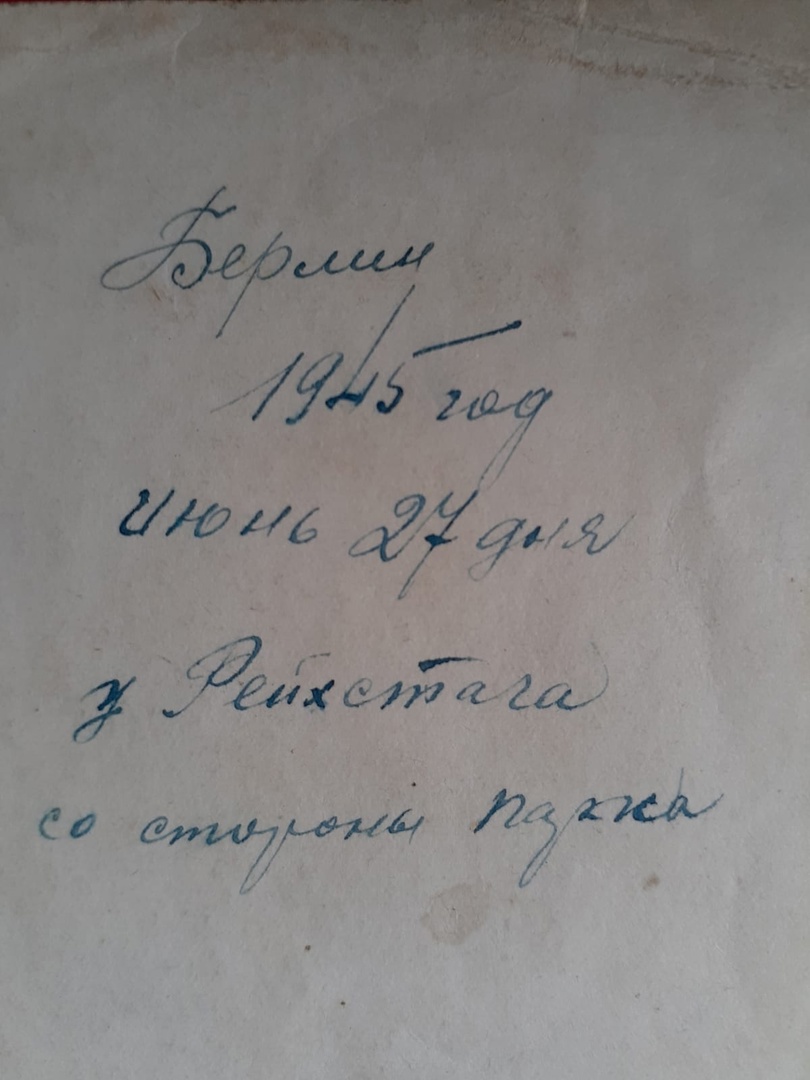 Берлин
1945 год
июнь 27 дня
у Рейхстага
со стороны парка